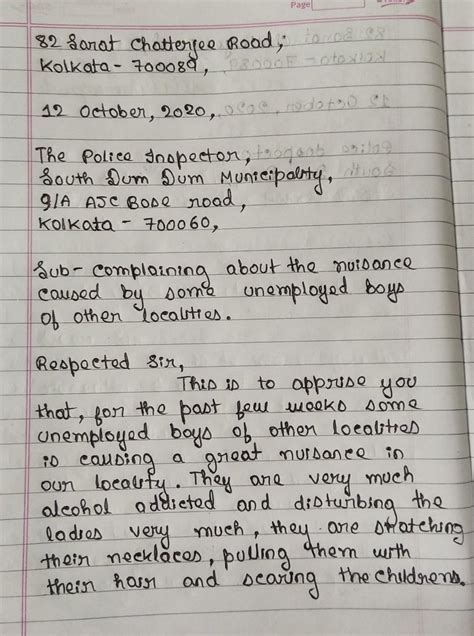 Page
82 Sarat Chatterjee Road,
Kolkata - 700089,
12 October, 2020,
The Police Inspector,
South Dum Dum Municipality,
9/A AJC Bose road,
Kolkata - 700060,
Sub- complaining about the nuisance
caused by some unemployed boys
of other localities.
Respected Sir,
This is to apprise you
that, for the past few weeks some
unemployed boys of other localities
is causing a great nuisance in
our locality. They are very much
alcohol addicted and disturbing the
ladies very much, they are snatching
their necklaces, pulling them with
their hair and scaring the childrens.